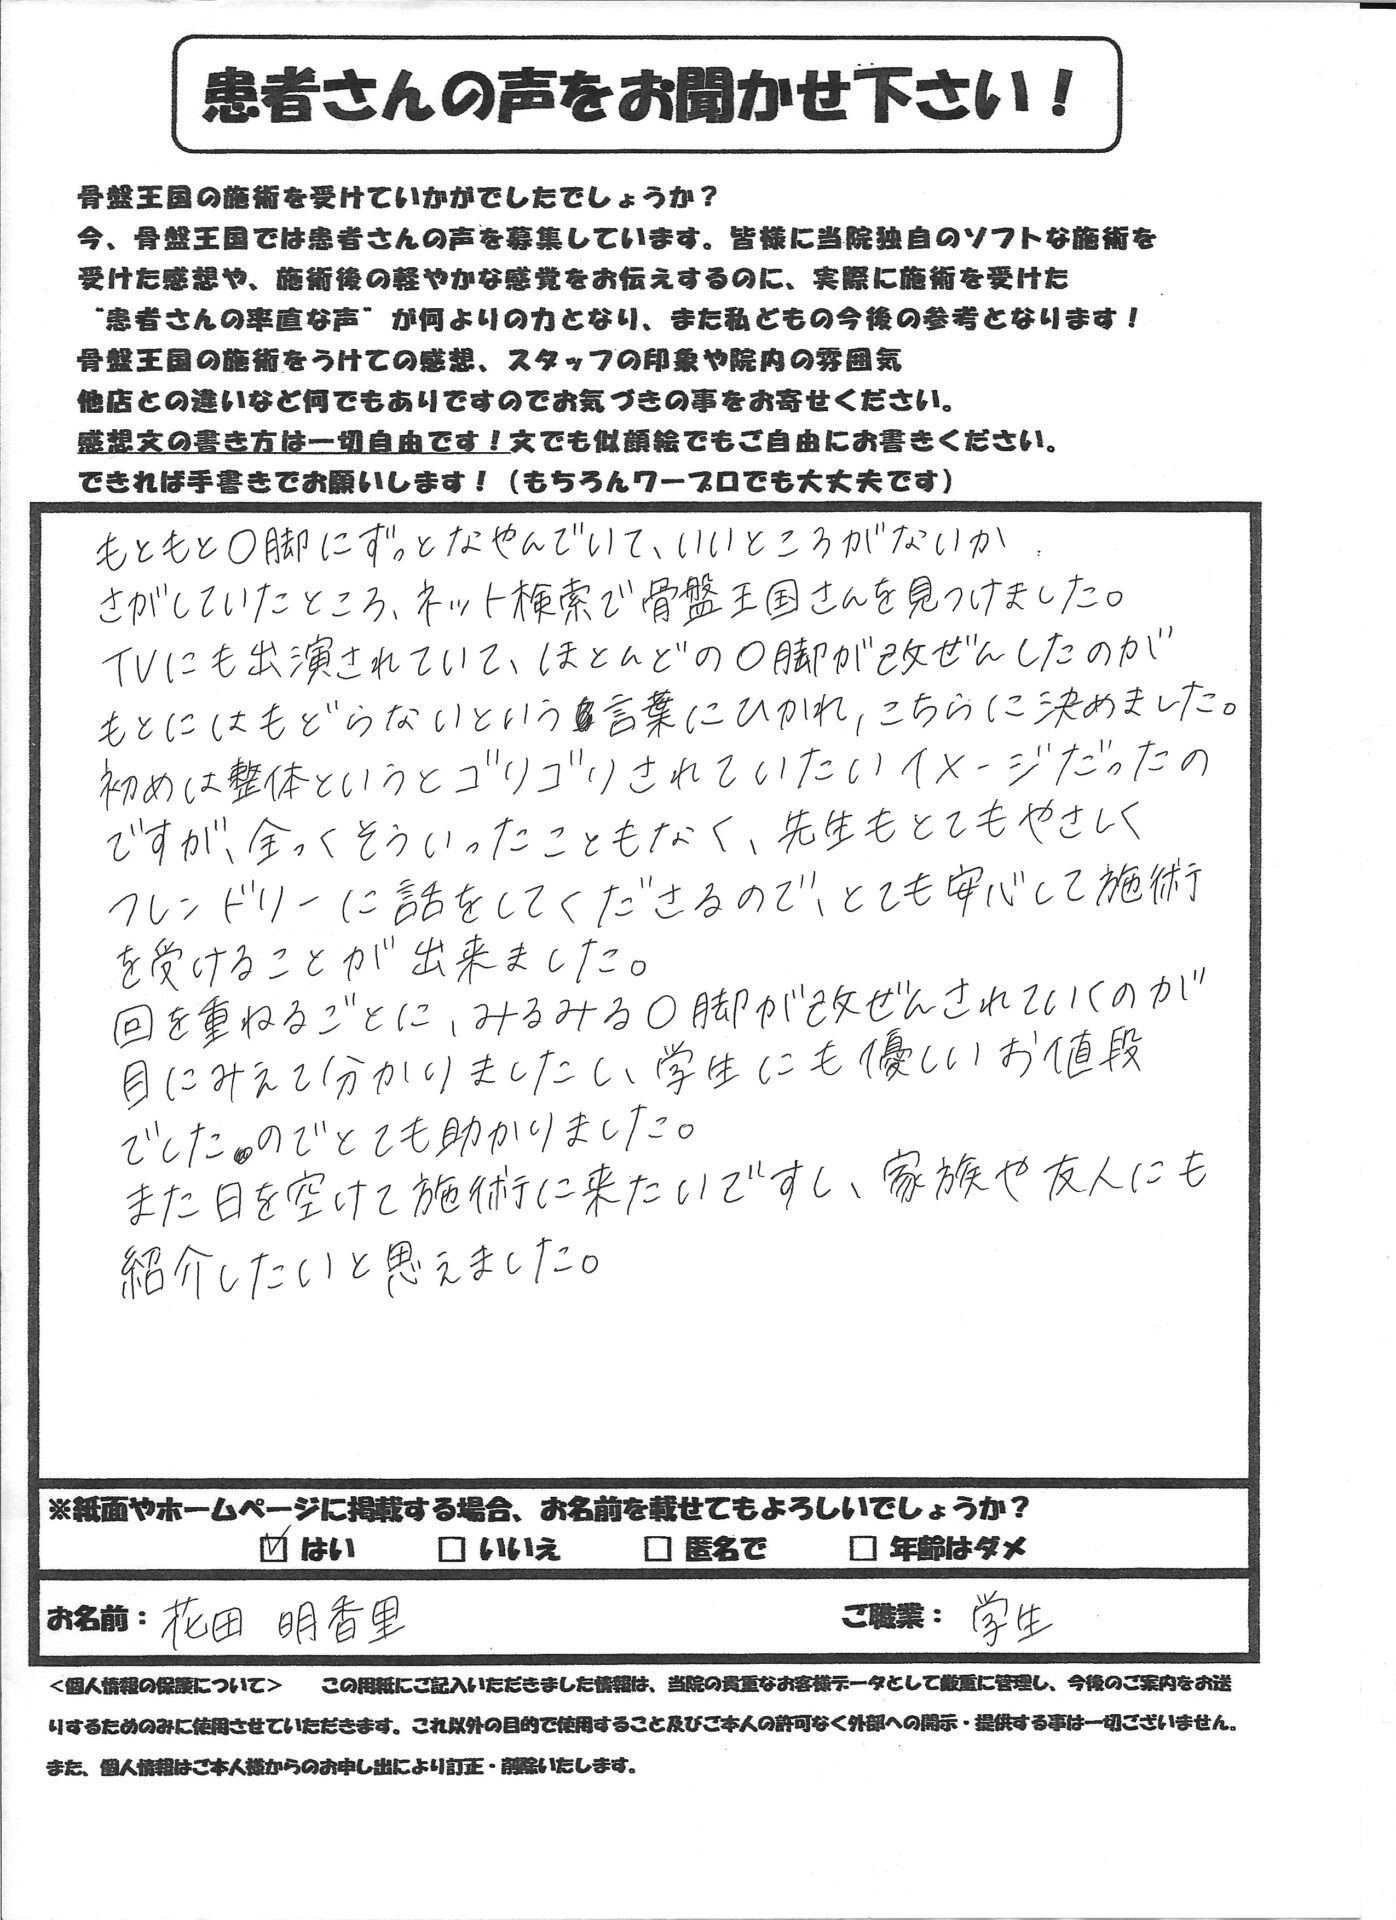 患者さんの声をお聞かせ下さい！
骨盤王国の施術を受けていかがでしたでしょうか？
今、骨盤王国では患者さんの声を募集しています。皆様に当院独自のソフトな施術を
受けた感想や、施術後の軽やかな感覚をお伝えするのに、実際に施術を受けた
“患者さんの率直な声”が何よりの力となり、また私どもの今後の参考となります！
骨盤王国の施術をうけての感想、スタッフの印象や院内の雰囲気
他店との違いなど何でもありですのでお気づきの事をお寄せください。
感想文の書き方は一切自由です！文でも似顔絵でもご自由にお書きください。
できれば手書きでお願いします！（もちろんワープロでも大丈夫です）
もともとO脚にずっとなやんでいて、いいところがないか
さがしていたところ、ネット検索で骨盤王国さんを見つけました。
TVにも出演されていて、ほとんどのO脚が改ぜんしたのが
もとにはもどらないという言葉にひかれ、こちらに決めました。
初めは整体というとゴリゴリされていたいイメージだったの
ですが、全っくそういったこともなく、先生もとてもやさしく
フレンドリーに話をしてくださるので、とても安心して施術
を受けることが出来ました。
回を重ねるごとに、みるみるO脚が改ぜんされていくのが
目にみえて分かりましたし、学生にも優しいお値段
でしたのでとても助かりました。
また日を空けて施術に来たいですし、家族や友人にも
紹介したいと思えました。
※紙面やホームページに掲載する場合、お名前を載せてもよろしいでしょうか？
☑ はい □ いいえ □ 匿名で □ 年齢はダメ
お名前：花田 明香里 ご職業：学生
＜個人情報の保護について＞ この用紙にご記入いただきました情報は、当院の貴重なお客様データとして厳重に管理し、今後のご案内をお送
りするためのみに使用させていただきます。これ以外の目的で使用すること及びご本人の許可なく外部への開示・提供する事は一切ございません。
また、個人情報はご本人様からのお申し出により訂正・削除いたします。